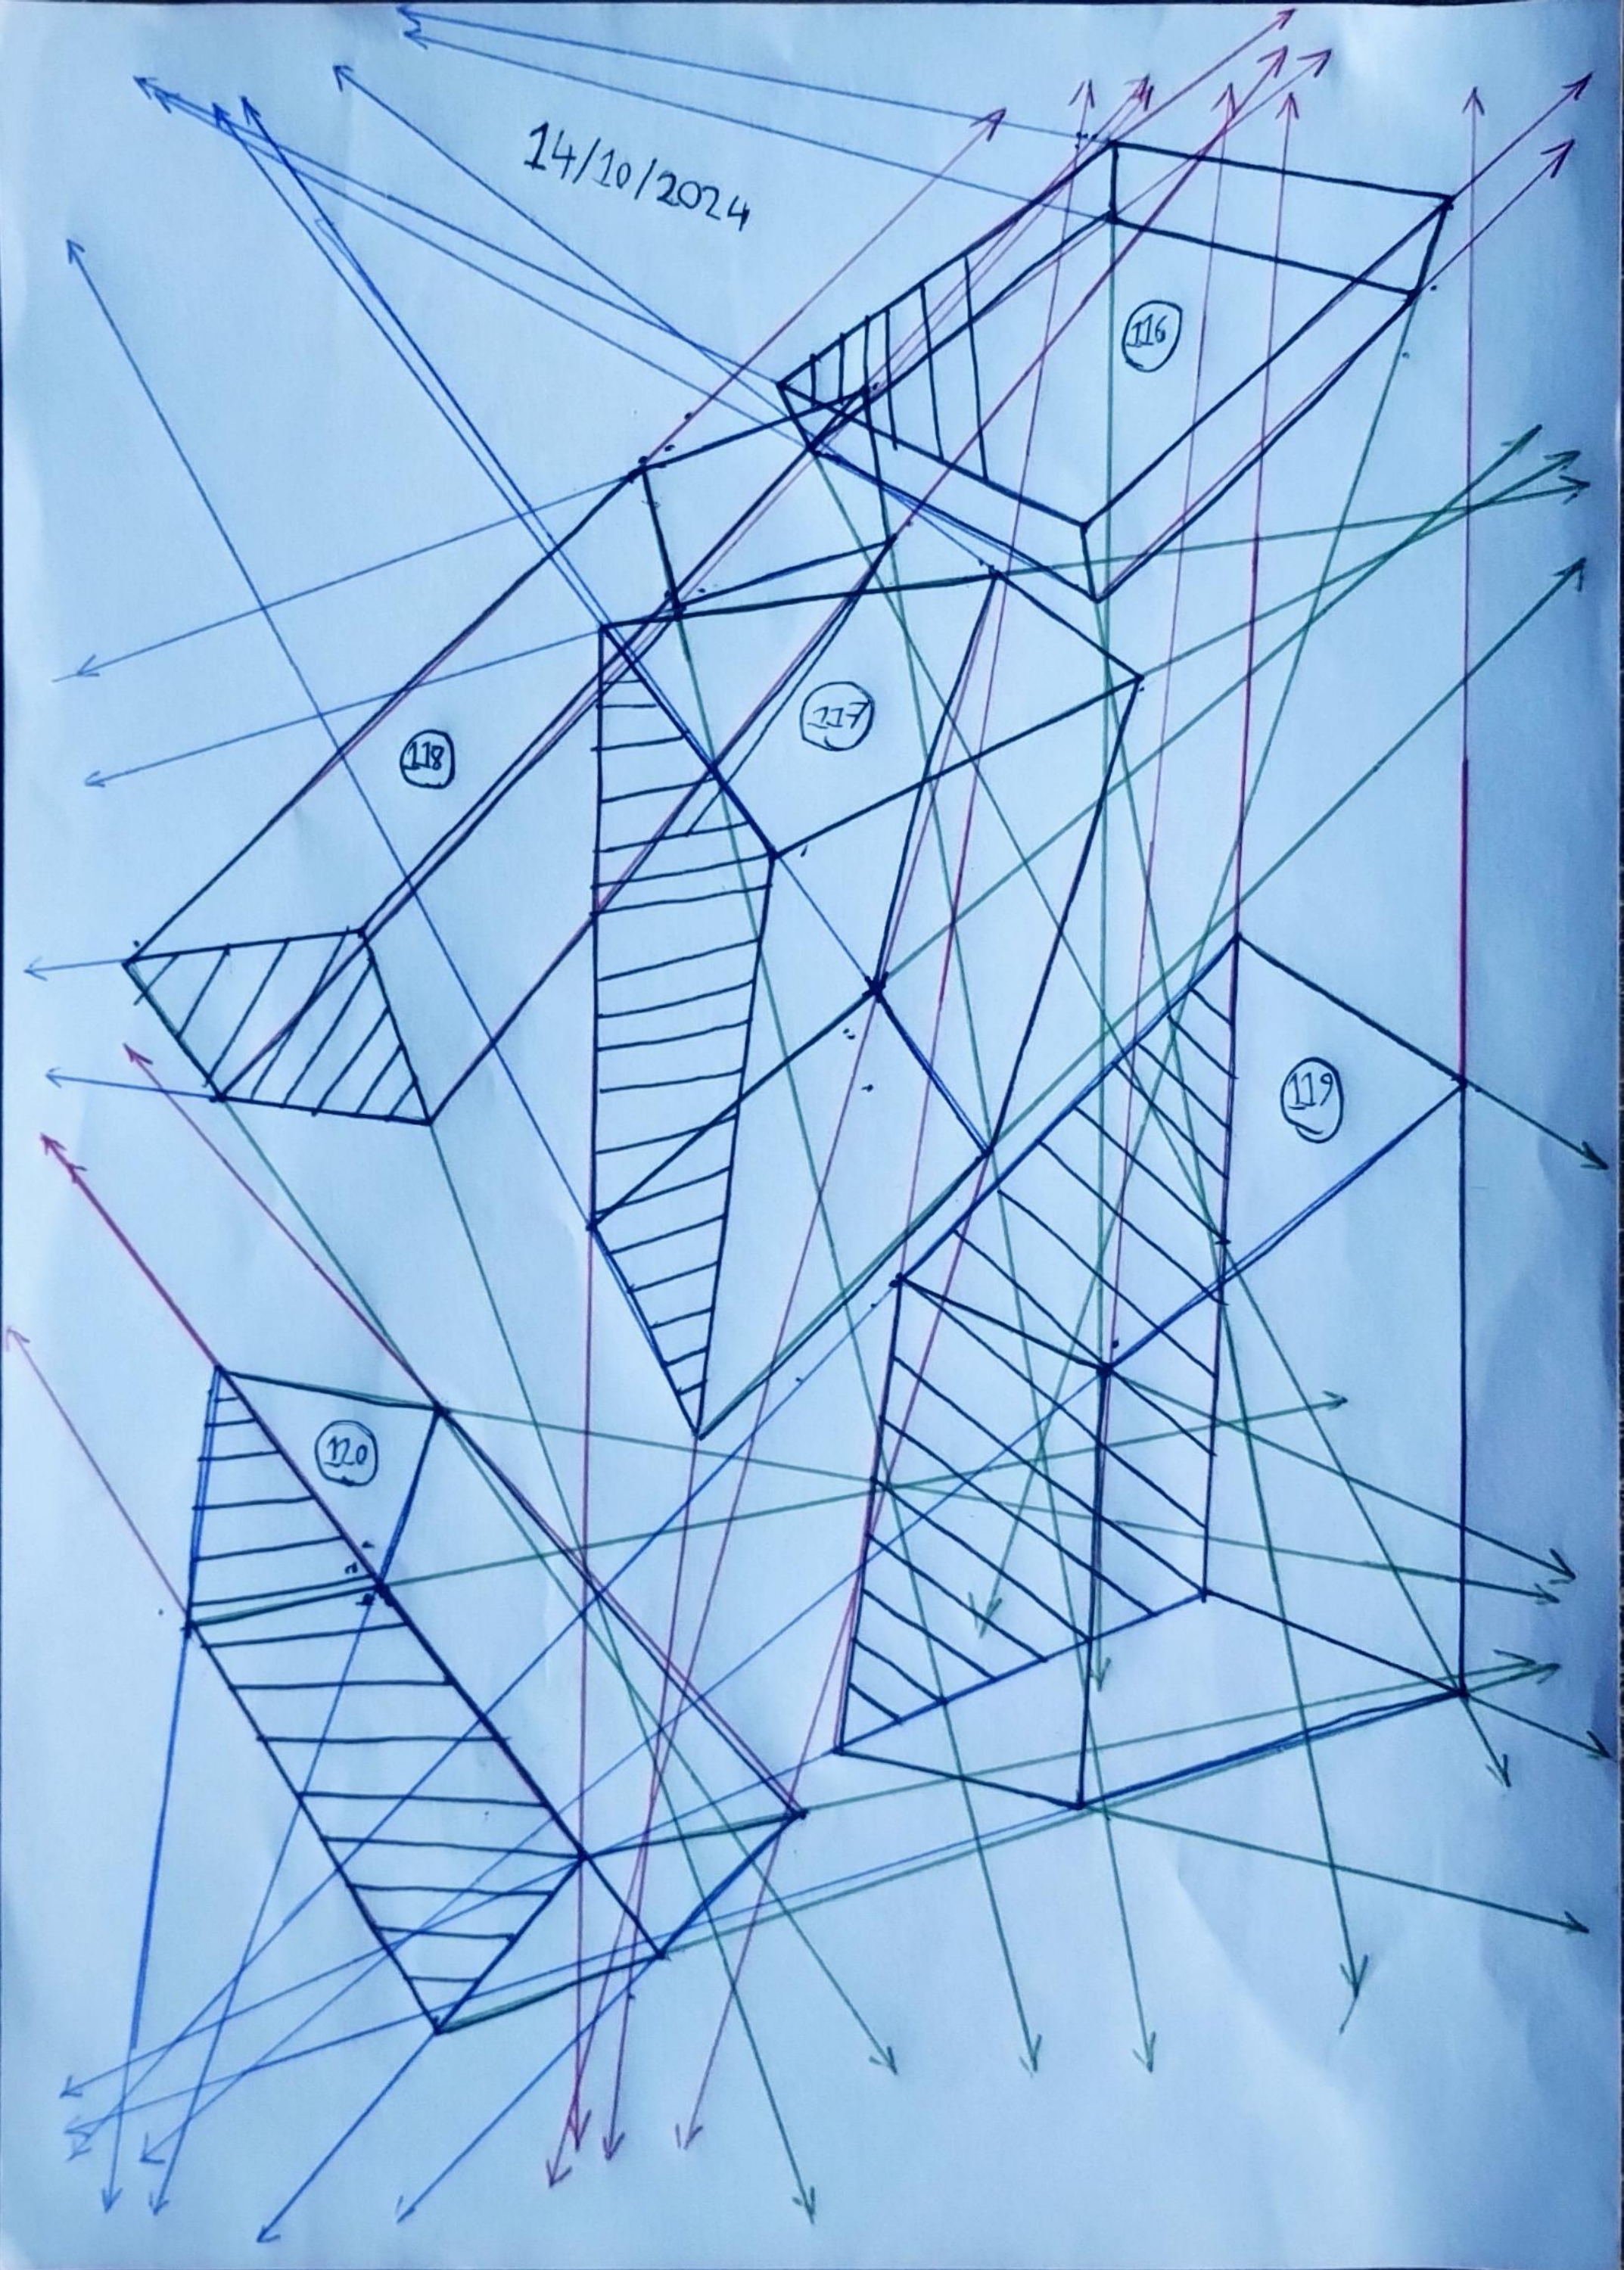 14/10/2024
116
117
118
119
120